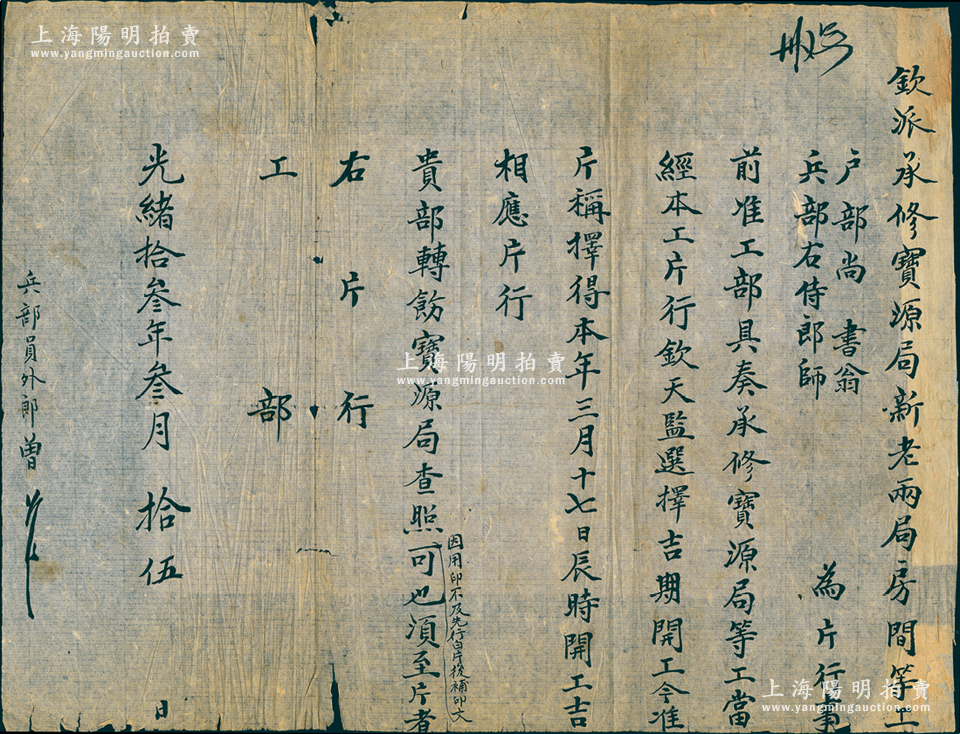 欽派承修寶源局新老兩局房間等工
户部尚書翁
兵部右侍郎師
為片行事
前准工部具奏承修寶源局等工當
經本工片行欽天監選擇吉期開工今准
片稱擇得本年三月十七日辰時開工吉
相應片行
貴部轉飭寶源局查照可也須至片者
因用印不及先行白片後補印文
右片行
工部
光緒拾叄年叄月拾伍日
兵部員外郎曾
上海陽明拍賣
www.yangmingauction.com
上海陽明拍賣
www.yangmingauction.com
上海陽明拍賣
www.yangmingauction.com